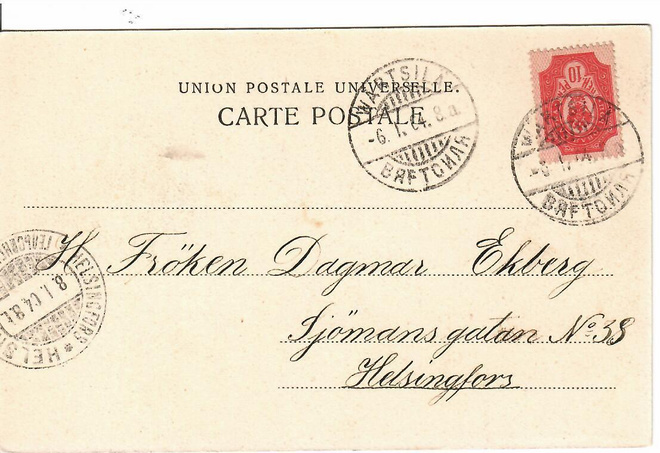 UNION POSTALE UNIVERSELLE.
CARTE POSTALE
WÄRTSILÄ
-6.1.04.8a.
ВЯРТСИЛЯ
10
ВЯРТСИЛЯ
H Fröken Dagmar Ekberg
Sjömansgatan No 38
Helsingfors
HELSINGFORS
8.1.04.8.